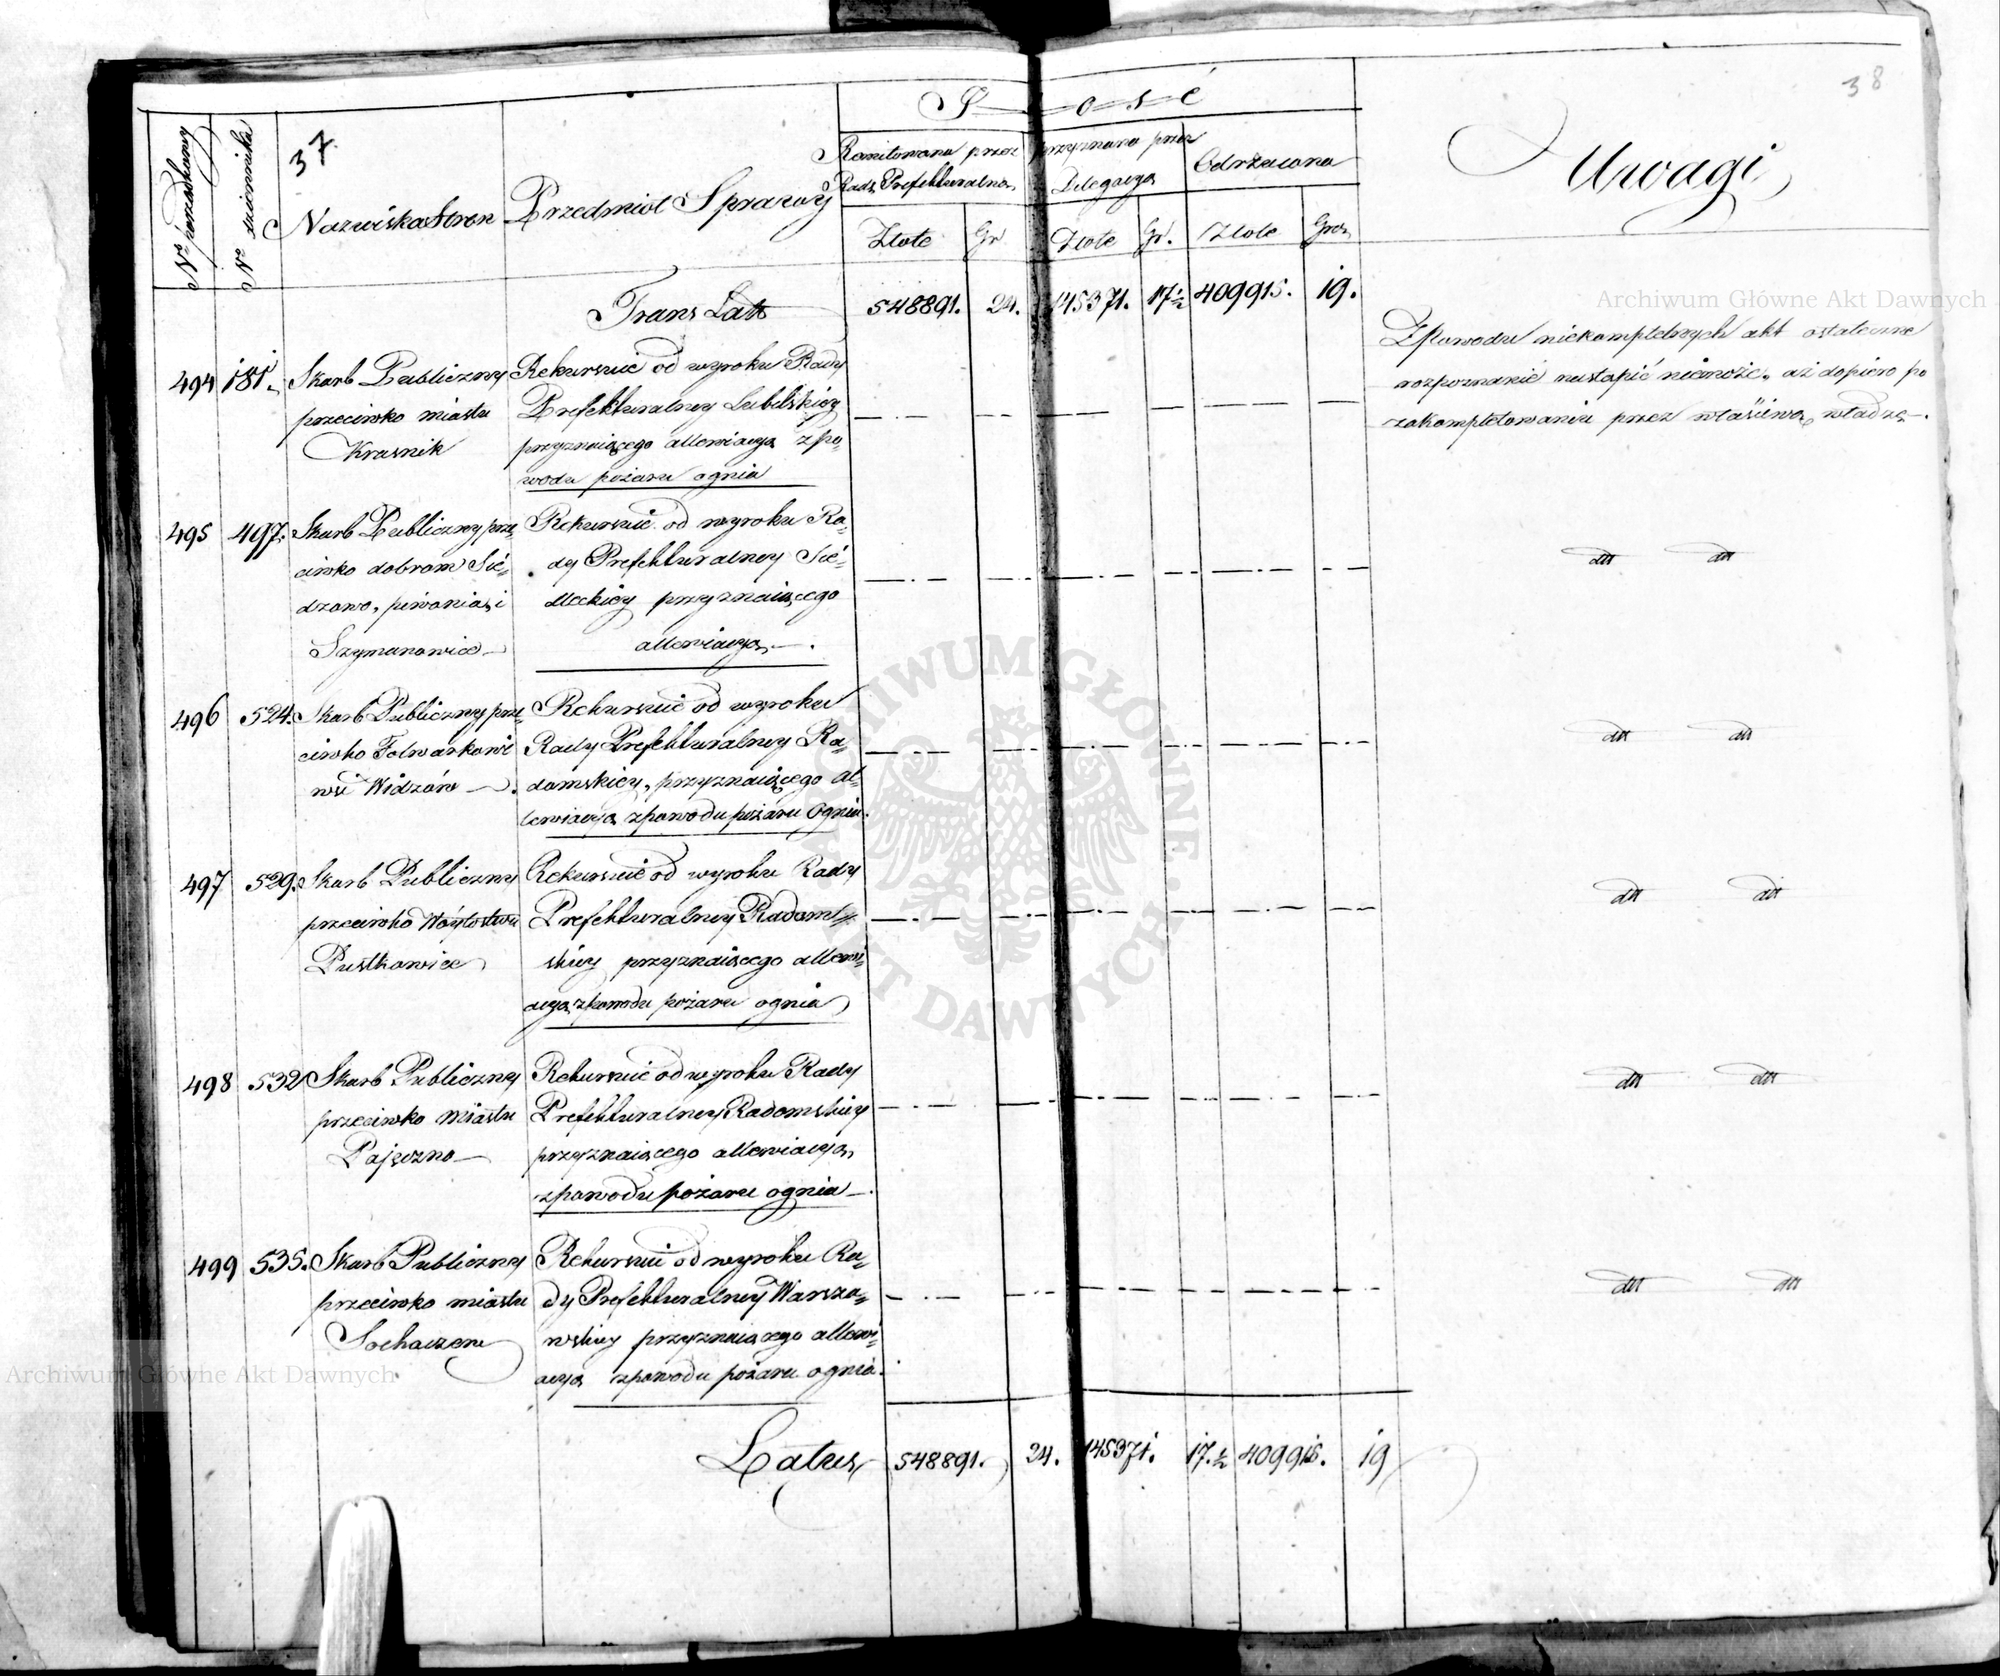 38
37
Ilość
N° porządkowy
N° dziennika
Nazwiska Stron
Przedmiot Sprawy
Ranitowana przez Radę Prefekturalną
przyznana przez Delegacyą
Odrzucona
Uwagi
Złote Gr Złote Gr. Złote Grosz
Trans Latt 548891. 24. 145371. 17 ½ 409915. 19.
494 181. Skarb Publiczny
przeciwko miastu
Krasnik
Rekursuie od wyroku Rady
Prefekturalney Lubelskiey
przyznaiącego allewiacyą zpo„
wodu pożaru ognia
Zpowodu niekompletnych akt ostateczne
rozpoznanie nastąpić niemoże, aż dopiero po
zakompletowaniu przez właściwą władzę.
495 497. Skarb Publiczny prze„
ciwko dobrom Sie„
dzowo, piwonia, i
Szymanowice
Rekursuie od wyroku Ra„
dy Prefekturalney Sie„
dleckiey przyznaiącego
allewiacyą.
dtt dtt
496 524. Skarb Publiczny prze„
ciwko Folwarkowi
wsi Widzów
Rekursuie od wyroku
Rady Prefekturalney Ra„
domskiey, przyznaiącego al„
lewiacyą zpowodu pożaru Ognia.
dtt dtt
497 529. Skarb Publiczny
przeciwko Wóytostwu
Pustkowice
Rekursuie od wyroku Rady
Prefekturalney Radom„
skiey przyznaiącego allewi„
acyą zpowodu pożaru ognia
dtt dtt
498 532 Skarb Publiczny
przeciwko Miastu
Pajęczno
Rekursuie od wyroku Rady
Prefekturalney Radomskiey
przyznaiącego allewiacyą,
zpowodu pożaru ognia.
dtt dtt
499 535. Skarb Publiczny
przeciwko miastu
Sochaczew
Rekursuie od wyroku Ra„
dy Prefekturalney Warsza„
wskiey przyznaiącego allewi„
acyą zpowodu pożaru ognia.
dtt dtt
Latus 548891. 24. 145371. 17. ½ 409915. 19
Archiwum Główne Akt Dawnych
Archiwum Główne Akt Dawnych
ARCHIWUM GŁÓWNE AKT DAWNYCH